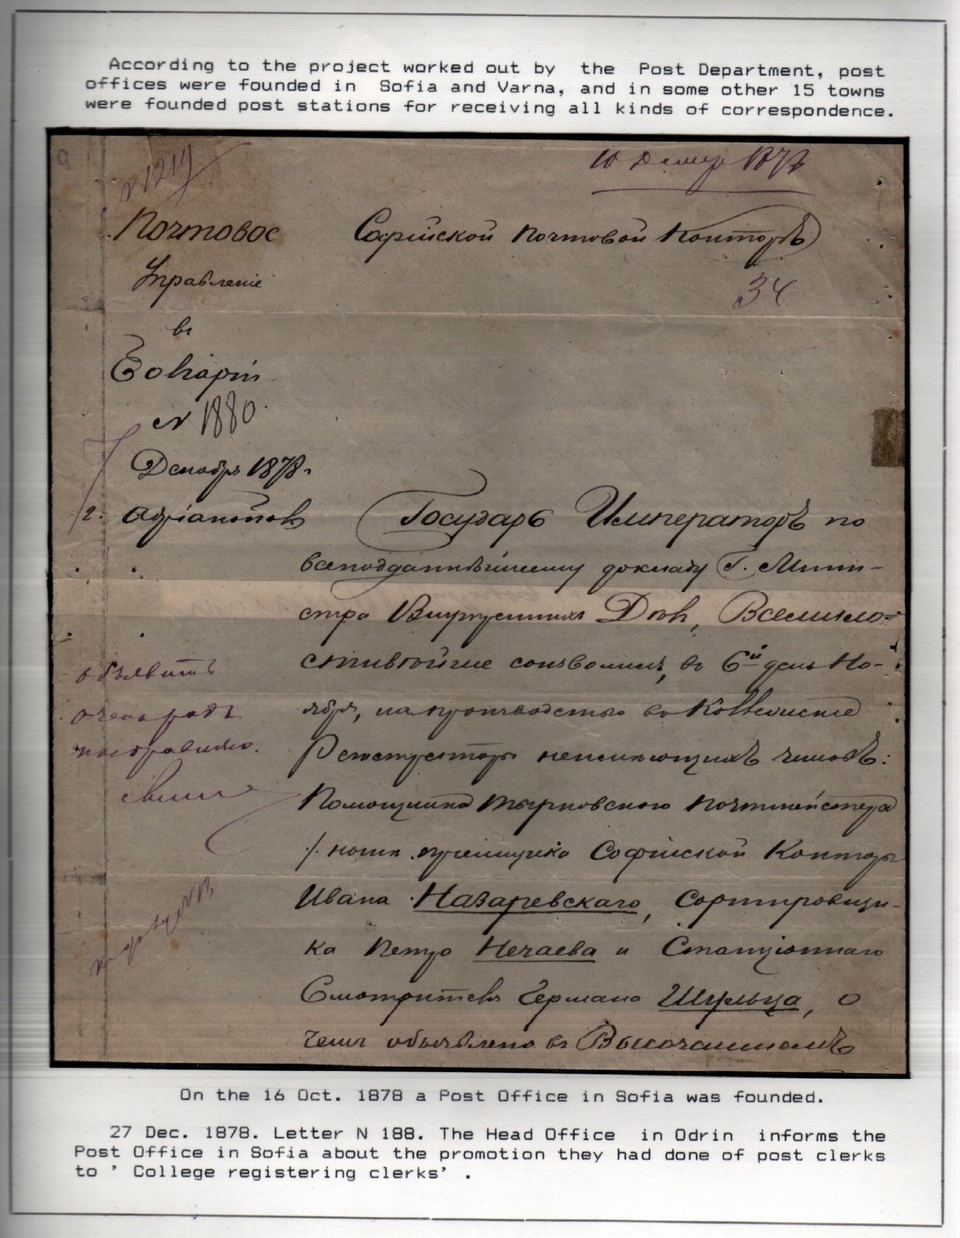 According to the project worked out by the Post Department, post
offices were founded in Sofia and Varna, and in some other 15 towns
were founded post stations for receiving all kinds of correspondence.
№ 1217
10 1878
Почтовое
Софійской Почтовой Конторѣ
Управленіе
34
въ
Болгаріи
№ 1880.
Декабря 1878 г.
г. Адріанополь
Государь Императоръ по
всеподданнѣйшему докладу Г. Мини-
стра Внутреннихъ Дѣлъ, Всемило-
стивѣйше соизволилъ, въ 6й день Но-
ября, на производство въ Коллежскіе
Регистраторы неимѣющихъ чиновъ:
Помощника Тырновскаго Почтмейстера
Софійской Конторы
Ивана Назаревскаго, Сортировщи-
ка Петра Нечаева и Станціоннаго
Смотрителя Германа Шульца, о
чемъ объявлено въ Высочайшемъ
объявить
On the 16 Oct. 1878 a Post Office in Sofia was founded.
27 Dec. 1878. Letter N 188. The Head Office in Odrin informs the
Post Office in Sofia about the promotion they had done of post clerks
to ' College registering clerks' .